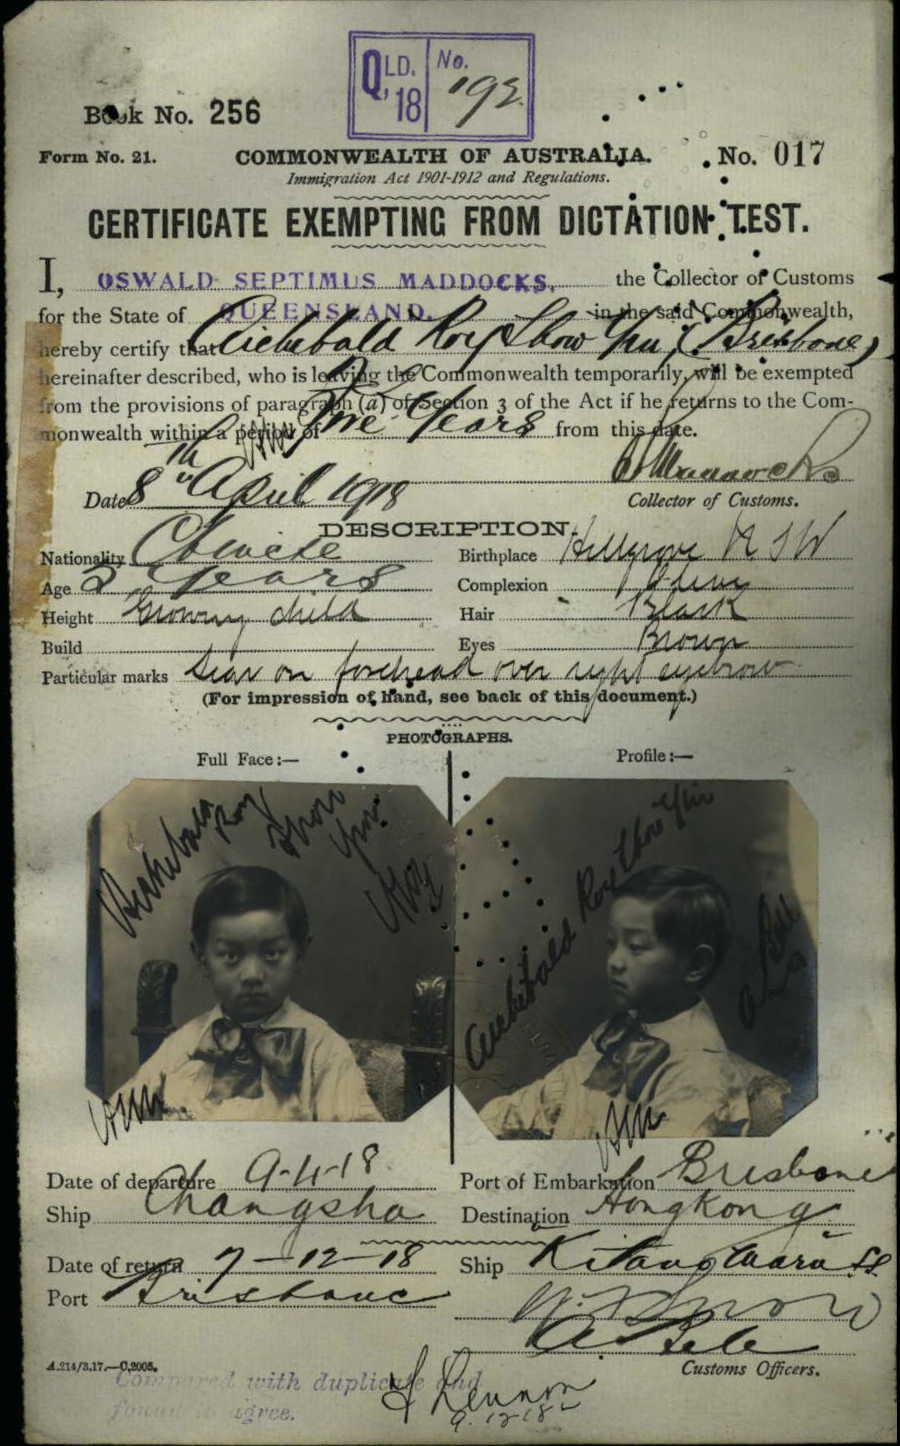 QLD. 18 No. 192.
Book No. 256
Form No. 21. COMMONWEALTH OF AUSTRALIA. No. 017
Immigration Act 1901-1912 and Regulations.
CERTIFICATE EXEMPTING FROM DICTATION TEST.
I, OSWALD SEPTIMUS MADDOCKS, the Collector of Customs
for the State of QUEENSLAND. in the said Commonwealth,
hereby certify that Archibald Roy Show Yin (Brisbane)
hereinafter described, who is leaving the Commonwealth temporarily, will be exempted
from the provisions of paragraph (a) of Section 3 of the Act if he returns to the Com-
monwealth within a period of Five Years from this date.
Date 8th April 1918
Collector of Customs.
DESCRIPTION.
Nationality Chinese Birthplace Hillgrove N S W
Age 3 Years Complexion
Height Growing child Hair Black
Build Eyes Brown
Particular marks Scar on forehead over right eyebrow
(For impression of hand, see back of this document.)
PHOTOGRAPHS.
Full Face:— Profile:—
Archibald Roy Show Yin
Archibald Roy Show Yin
Date of departure 9-4-18 Port of Embarkation Brisbane
Ship Changsha Destination Hongkong
Date of return 7-12-18 Ship Kitano Maru
Port Brisbane
Customs Officers.
A.214/3.17.—C.2005.
Compared with duplicate and
found to agree.
9.12.18